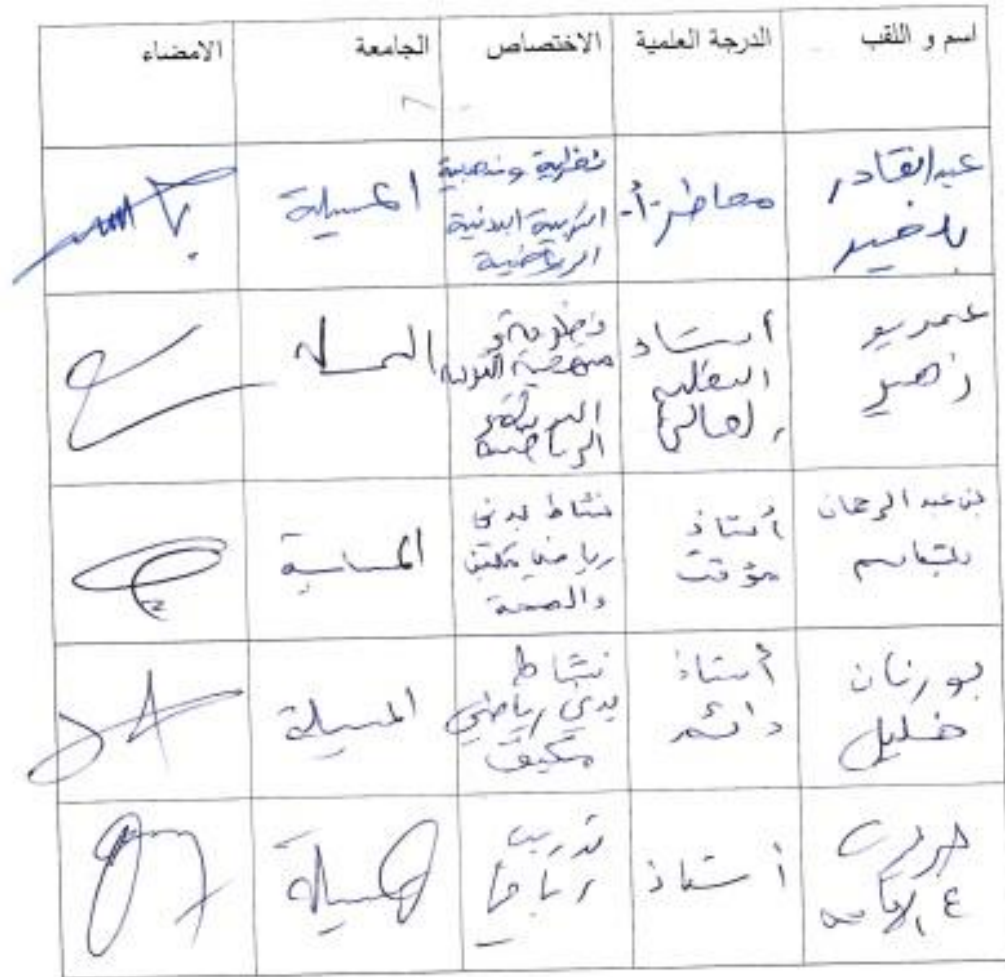 اسم و اللقب الدرجة العلمية الاختصاص الجامعة الامضاء
عبد القادر بلخير
محاضر -أ-
نظرية ومنهجية
التربية البدنية
الرياضية
المسيلة
زهير
أستاذ
التعليم
العالي
الرياضية
المسيلة
بن عبد الرحمان
بلقاسم
أستاذ
مؤقت
نشاط بدني
رياضي مكيف
والصحة
المسيلة
بورنان
خليل
أستاذ
دائم
نشاط
بدني رياضي
مكيف
المسيلة
أستاذ
تدريب
رياضي
المسيلة